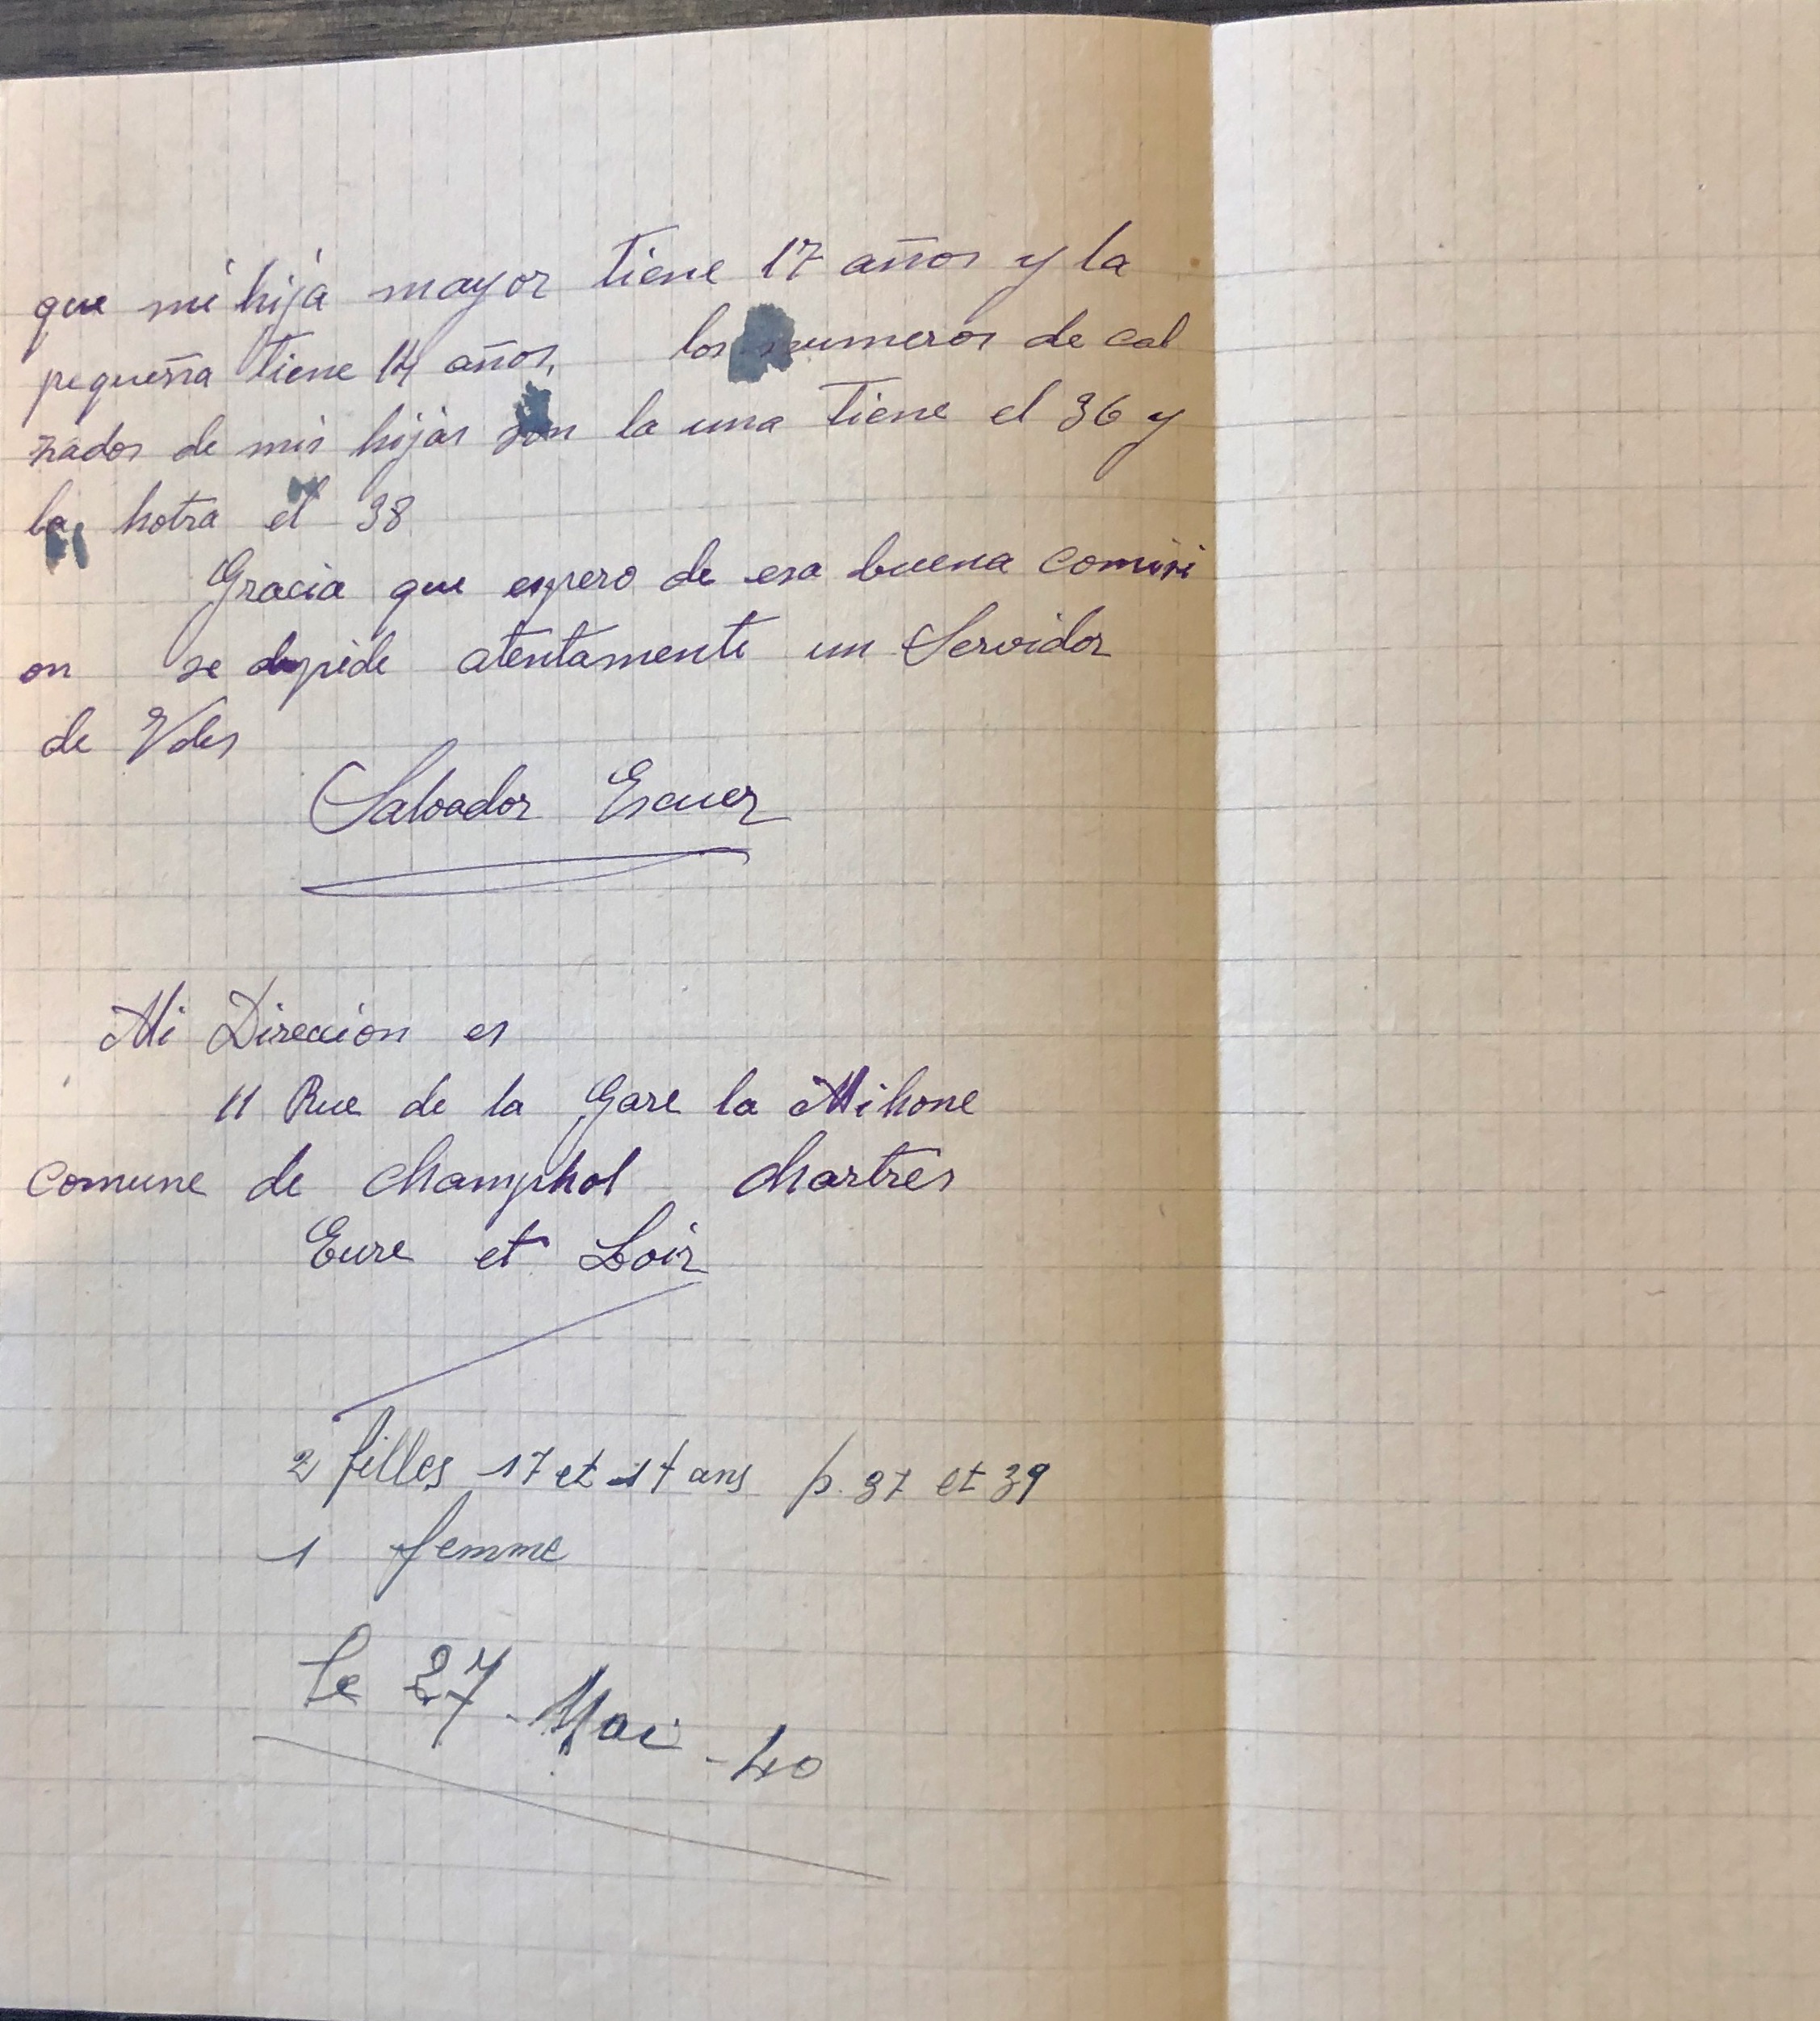 que mi hija mayor tiene 17 años y la
pequeña tiene 14 años, los numeros de cal
zados de mis hijas son la una tiene el 36 y
la hotra el 38
Gracia que espero de esa buena comisi
on se despide atentamente un Servidor
de Vdes
Salvador Escuer
Mi Direccion es
11 Rue de la Gare la Mihone
comune de champhol chartres
Eure et Loir
2 filles 17 et 14 ans p. 37 et 39
1 femme
le 27 Mai - 40